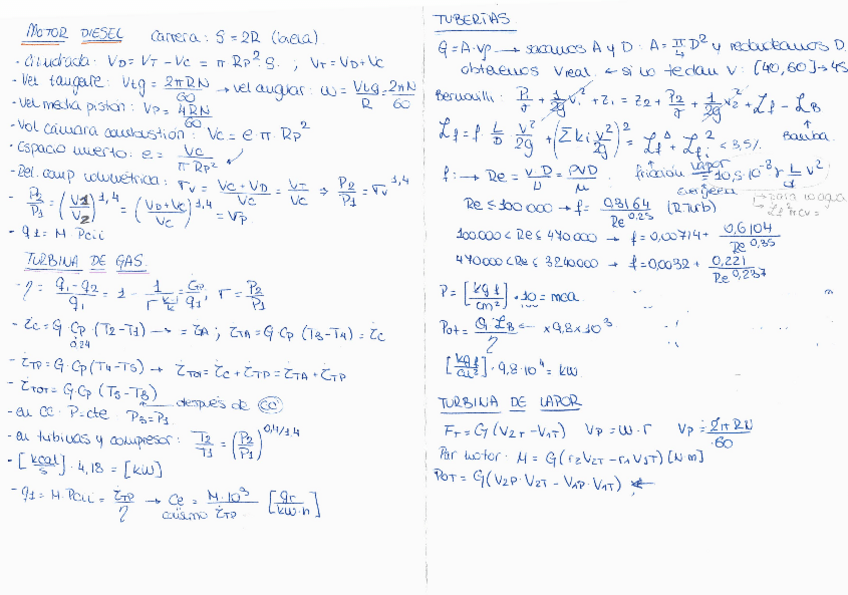 MOTOR DIESEL   Carrera: S = 2R (biela).
- Cilindrada: VD = VT - Vc = π Rp²·S. ; VT = VD + Vc
- Vel tangente: Vtg = 2πRN/60 → vel angular: ω = Vtg/R = 2πN/60
- Vel media piston: Vp = 4RN/60
- Vol cámara combustión: Vc = e·π·Rp²
- Espacio muerto: e = Vc/π·Rp²
- Rel. comp volumétrica: rv = Vc+VD/Vc = VT/Vc ⇒ P2/P1 = rv^1,4
- P2/P1 = (V1/V2)^1,4 = (VD+Vc/Vc)^1,4 = rp
- q1 = M·Pcii
TURBINA DE GAS.
- η = q1-q2/q1 = 1 - 1/r^(k-1/k) = τTP/q1, r = P2/P1
- τc = G·Cp·(T2-T1) → = τA ; τTA = G·Cp(T3-T4) = τc
0,24
- τTP = G·Cp(T4-T5) → τTOT = τc + τTP = τTA + τTP
- τTOT = G·Cp(T3-T5)
después de CC
- en CC: P=cte P3=P2
- en turbinas y compresor: T2/T1 = (P2/P1)^0,4/1,4
- [kcal/s]·4,18 = [kW]
- q1 = M·Pcii = τTP/η → Ce = M·10³/τTP [gr/kW·h]
consumo
TUBERIAS
G = A·vp → sacamos A y D: A = π/4 D² y redondeamos D.
obtenemos Vreal. ← si no te dan V: [40,60] → 45
Bernouilli: P1/γ + 1/2g v1² + z1 = z2 + P2/γ + 1/2g v2² + Lf - LB
Bomba.
Lf = f · L/D · v²/2g + (Σki v²/2g) = Lf + Lf < 3,5%
f: → Re = v·D/υ = ρVD/μ. fricción vapor = 10,5·10^-8 · L/d v²
Re ≤ 100 000 → f = 0,3164/Re^0,25 (R.Turb)
100.000 < Re ≤ 470000 → f = 0,00714 + 0,6104/Re^0,35
470000 < Re ≤ 3240000 → f = 0,0032 + 0,221/Re^0,237
P = [kgf/cm²]·10 = mca
Pot = G·LB/η ← ×9,8×10³
[kgf/cm²]·9,8·10⁴ = kW.
TURBINA DE VAPOR
FT = G(V2T - V1T)   Vp = ω·r   Vp = 2πRN/60
Par motor: M = G(r2V2T - r1V1T) [N·m]
POT = G(V2P·V2T - V1P·V1T)